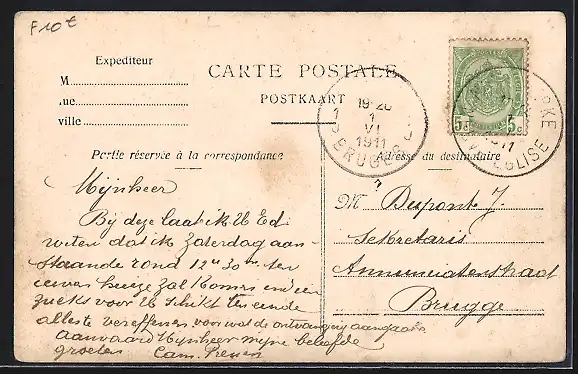 Expediteur
M
rue
ville
CARTE POSTALE
POSTKAART
19-20
1
VI
1911
BRUGGE
5c 5c
EGLISE
11
Partie réservée à la correspondance
Adresse du destinataire
Mijnheer
Bij deze laat ik U Ed
weten dat ik Zaterdag aan-
staande rond 12 u 30 ten
uwen huize zal komen indien
zucks voor U schikt ten einde
alles te vereffenen voor wat de ontvangeng aangaat
Aanvaard Mijnheer mijne beleefde
groeten Cam.
M Dupont J.
Sekretaris
Annunciatenstraat
Brugge